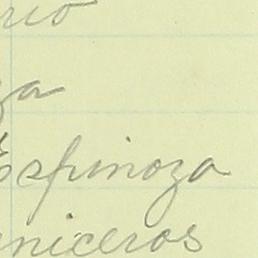 rio
za
Espinoza
niceros